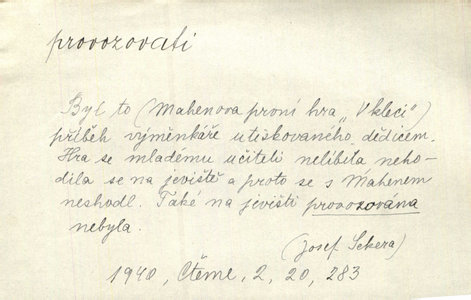 provozovati
Byl to (Mahenova první hra „V kleci")
příběh výměnkáře utiskovaného dědicem.
Hra se mladému učiteli nelíbila neho-
dila se na jeviště a proto se s Mahenem
neshodl. Také na jevišti provozována
nebyla.
(Josef Sekera)
1940, Čteme, 2, 20, 283